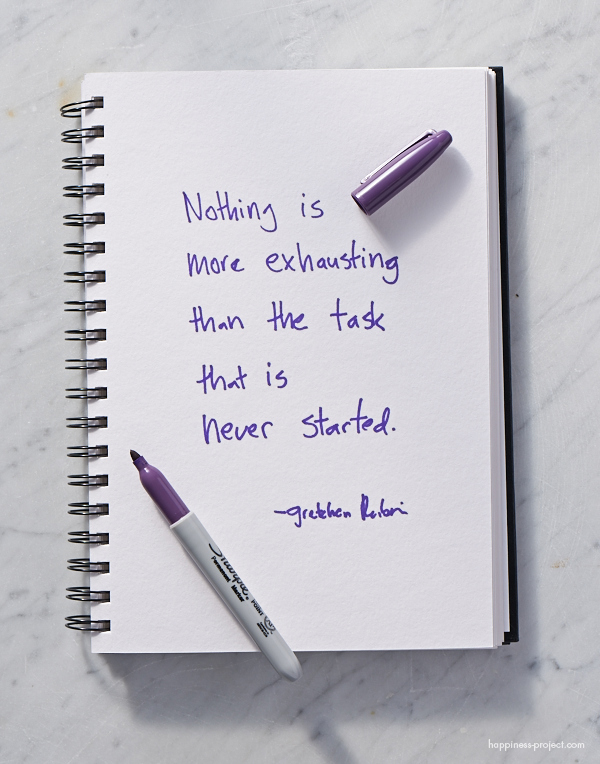 Nothing is
more exhausting
than the task
that is
never started.
-gretchen Rubin
Sharpie.
Permanent Marker
POINT
happiness-project.com